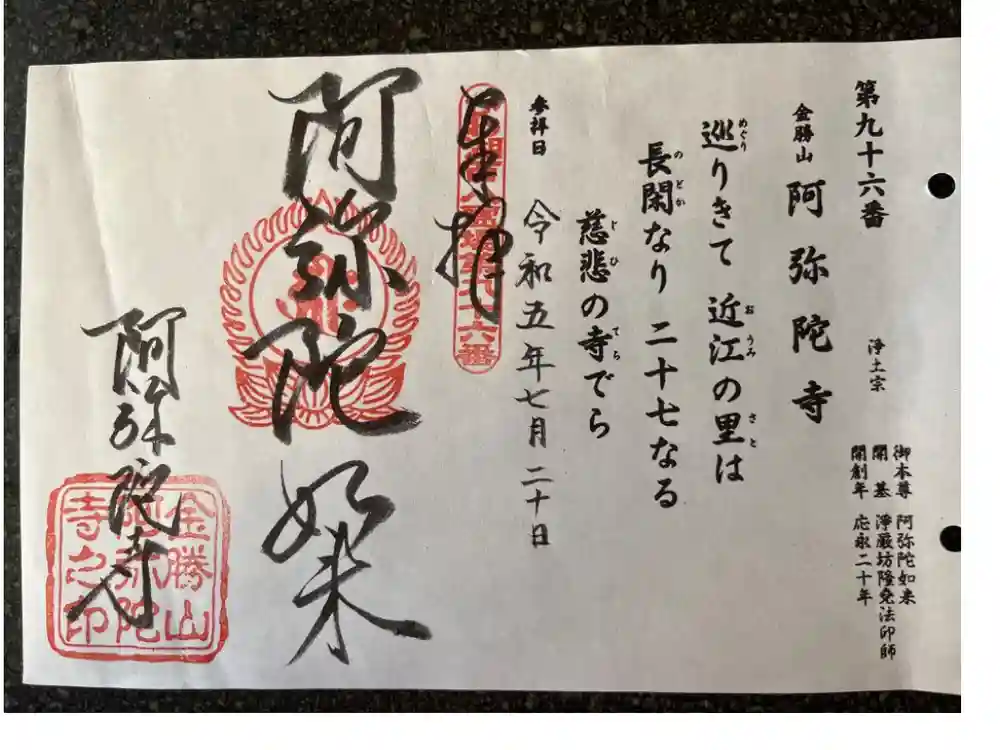 第九十六番
金勝山 阿弥陀寺 浄土宗
御本尊 阿弥陀如来
開基 浄厳坊隆尭法印師
開創年 応永二十年
巡りきて 近江の里は
めぐり おうみ さと
長閑なり 二十七なる
のどか
慈悲の寺でら
じひ てら
参拝日 令和五年七月二十日
奉拝
霊場第九十六番
阿弥陀如来
阿弥陀寺
金勝山
阿弥陀
寺之印